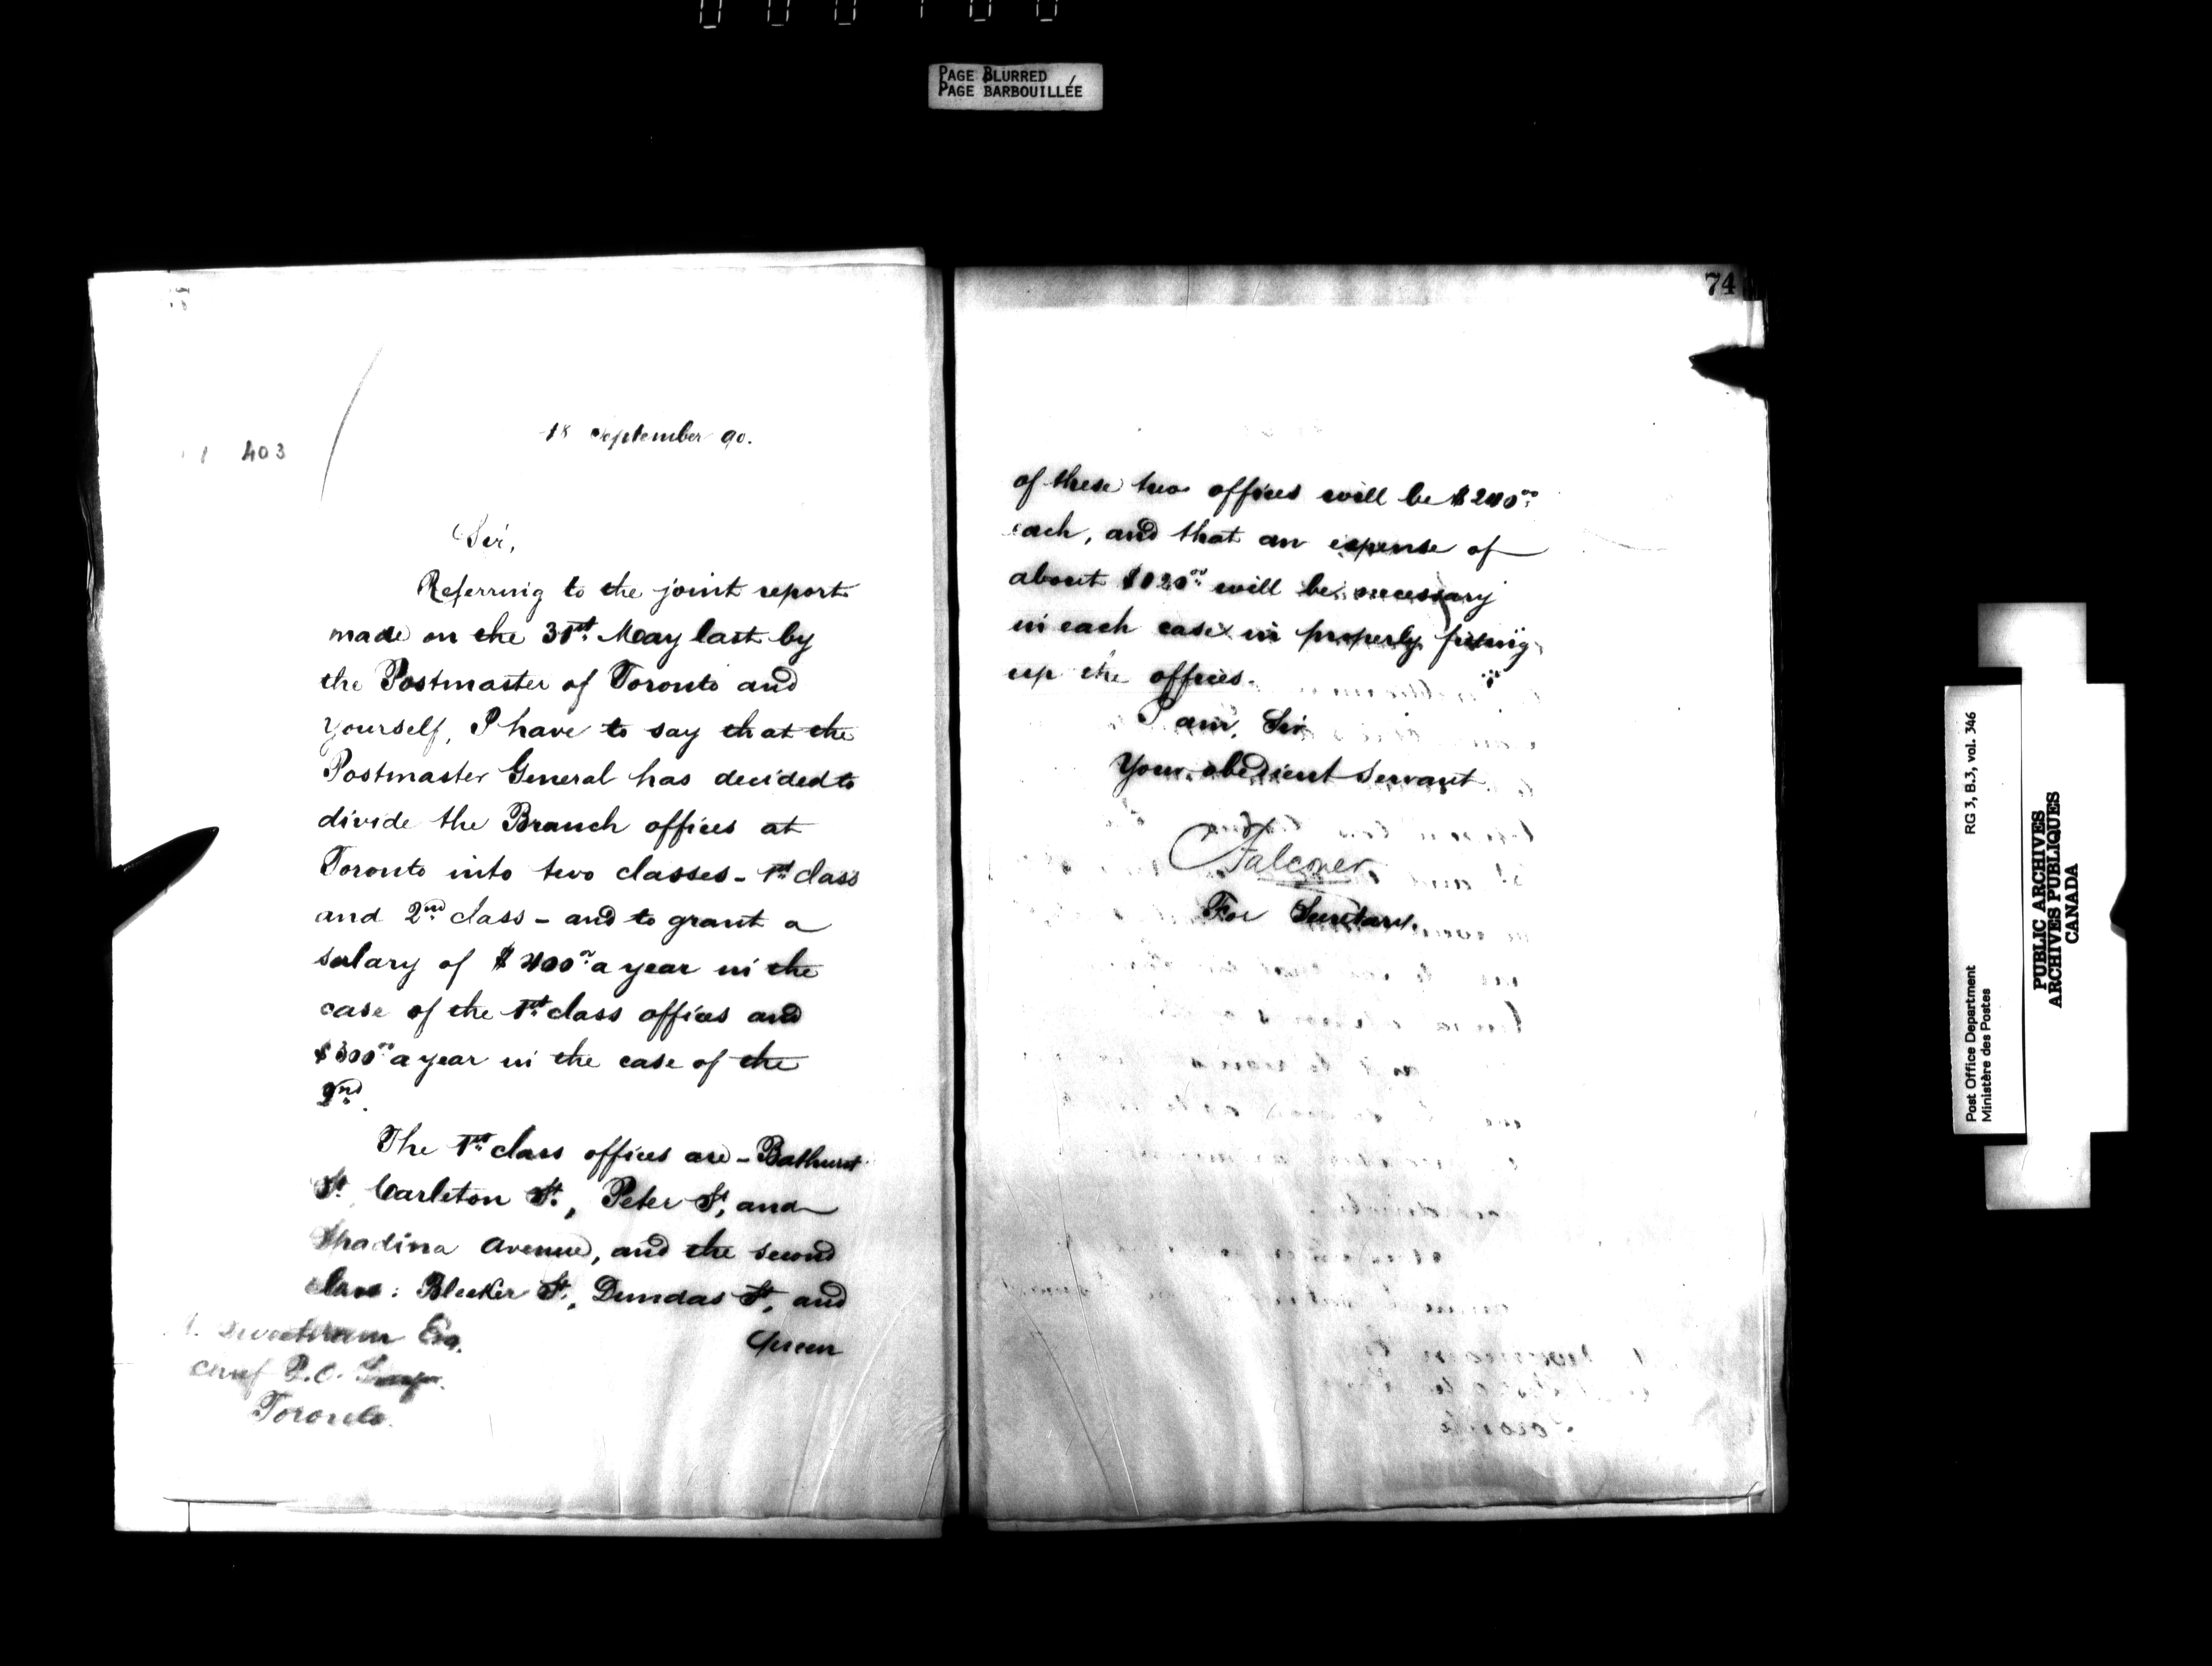 PAGE BLURRED
PAGE BARBOUILLÉE
74
403
18 September 90.
Sir,
Referring to the joint report
made on the 31st. May last by
the Postmaster of Toronto and
yourself, I have to say that the
Postmaster General has decided to
divide the Branch offices at
Toronto into two classes - 1st class
and 2nd class - and to grant a
salary of $400 a year in the
case of the 1st class offices and
$300 a year in the case of the
2nd.
The 1st class offices are - Bathurst
St. Carleton St., Peter St, and
Spadina Avenue, and the second
class: Bleeker St., Dundas St, and
Queen
Sweetnam Esq.
Chief P.O.
Toronto.
of these two offices will be
each, and that an expense of
about will be necessary
in each case in properly fitting
up the offices.
I am, Sir
Your obedient Servant
Falconer
For Secretary.
Post Office Department
Ministère des Postes
RG 3, B.3, vol. 346
PUBLIC ARCHIVES
ARCHIVES PUBLIQUES
CANADA